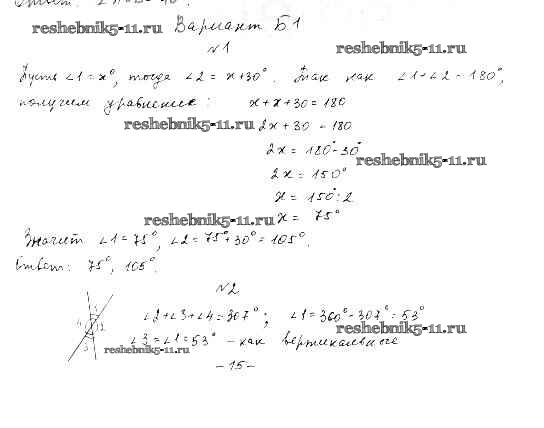 Ответ:
Вариант Б1
reshebnik5-11.ru
№1
reshebnik5-11.ru
Пусть ∠1 = x°, тогда ∠2 = x+30°. Так как ∠1+∠2 = 180°,
получим уравнение: x+x+30=180
reshebnik5-11.ru 2x+30 = 180
2x = 180°-30°
reshebnik5-11.ru
2x = 150°
x = 150°:2
reshebnik5-11.ru x = 75°
Значит ∠1=75°, ∠2=75°+30°=105°.
Ответ: 75°, 105°.
№2
4 1 2 3
∠2+∠3+∠4=307°; ∠1=360°-307°=53°
reshebnik5-11.ru
∠3=∠1=53° - как вертикальные
reshebnik5-11.ru
-15-